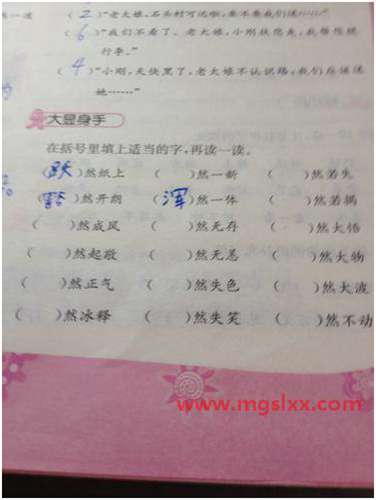 (2)“老大娘,石头村可远啦,要不要我们送……”
(6)“我们不看了。老大娘,小刚扶您走,我帮您提
行李。”
(4)“小刚,天快黑了,老大娘不认识路,我们应该送
她……”
大显身手
在括号里填上适当的字,再读一读。
(跃)然纸上 ( )然一新 ( )然若失
(豁)然开朗 (浑)然一体 ( )然若揭
( )然成风 ( )然无存 ( )然大悟
( )然起敬 ( )然无恙 ( )然大物
( )然正气 ( )然失色 ( )然大波
( )然冰释 ( )然失笑 ( )然不动
www.mgslxx.com